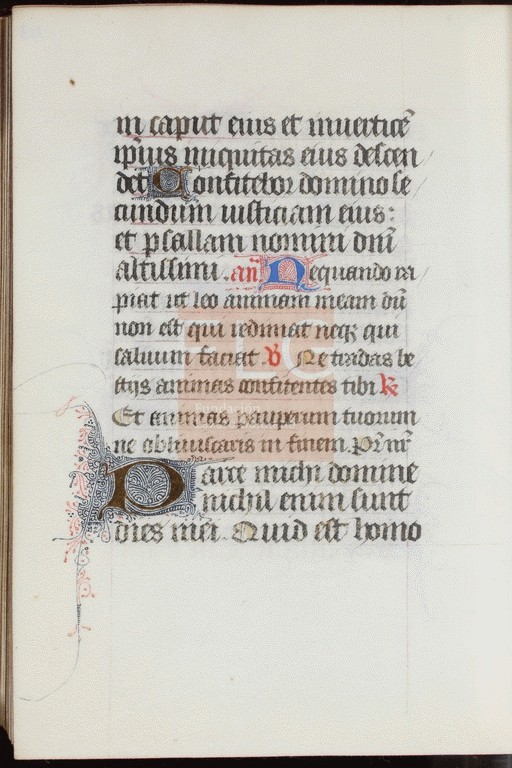 in caput eius et in uerticē
ip̄ius iniquitas eius descen
det Confitebor domino se
cundum iusticiam eius:
et psallam nomini dn̄i
altissimi . an̄. Nequando ra
piat ut leo animam meam dū
non est qui redimat neqꝫ qui
saluum faciat ℣ Ne tradas be
stijs animas confitentes tibi ℟
Et animas pauperum tuorum
ne obliuiscaris in finem. Pr̄ nr̄
Parce michi domine
nichil enim sunt
dies mei. Quid est homo